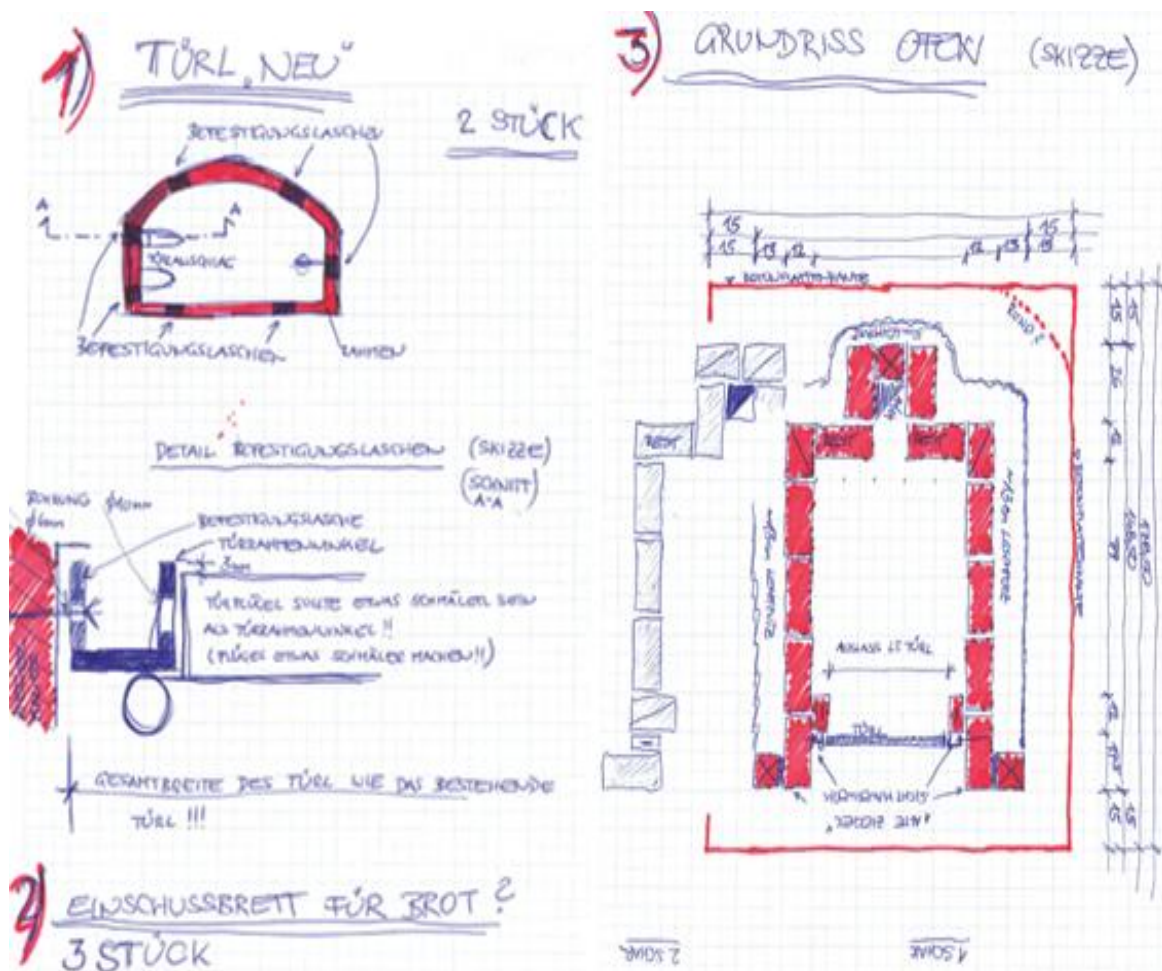 1)
TÜRL „NEU"
2 STÜCK
BEFESTIGUNGSLASCHEN
A
A
TÜRANSCHLAG
BEFESTIGUNGSLASCHEN
RAHMEN
DETAIL BEFESTIGUNGSLASCHEN (SKIZZE)
(SCHNITT
A-A
BOHRUNG
φ6mm
φ10mm
BEFESTIGUNGSLASCHE
TÜRRAHMENWINKEL
3mm
TÜRFLÜGEL SOLLTE ETWAS SCHMÄLER SEIN
ALS TÜRRAHMENWINKEL!!
(FLÜGEL ETWAS SCHMÄLER MACHEN!!)
GESAMTBREITE DES TÜRL WIE DAS BESTEHENDE
TÜRL !!!
2)
EINSCHUSSBRETT FÜR BROT?
3 STÜCK
3)
GRUNDRISS OFEN (SKIZZE)
15
15
15
13
12
12
13
15
RUND?
15
15
26
12
77
12
15
15
REST
REST
REST
AUSLASS LT TÜRL
TÜRL
SICHTMAUERWERK
"ALTE ZIEGEL"
2 SCHAR
1 SCHAR